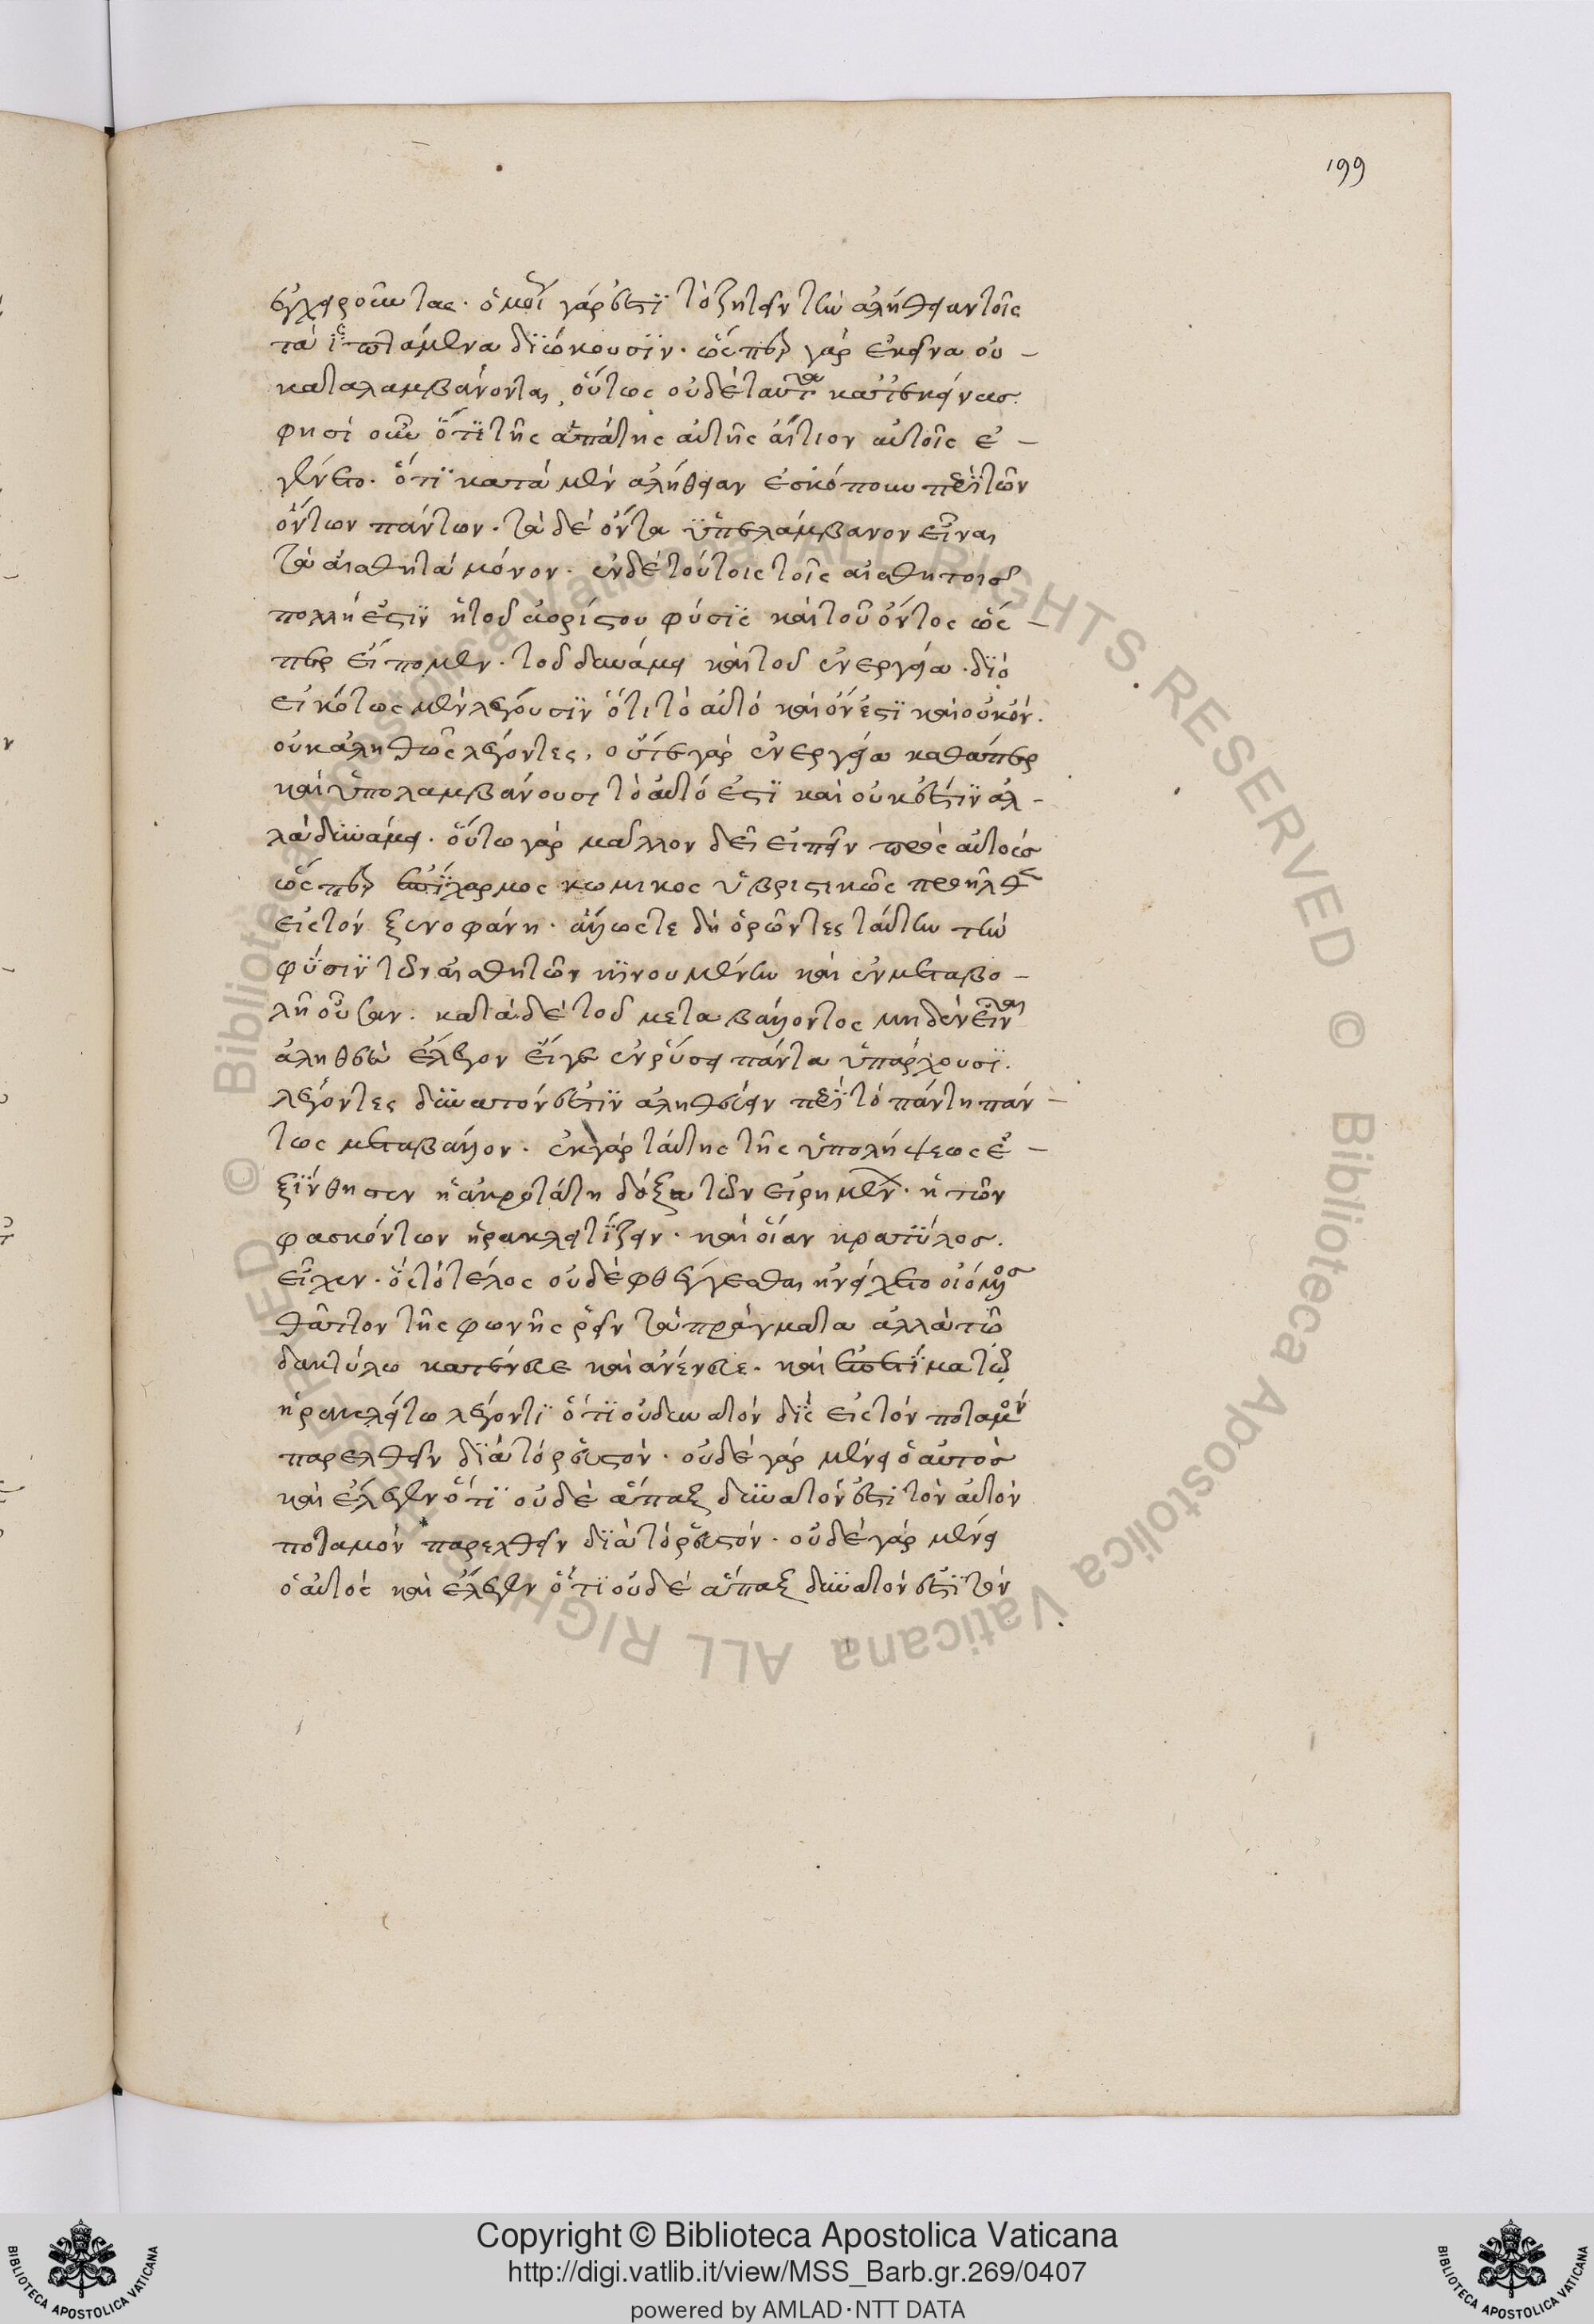 199
ἐγχειροῦντας. ὅμοιον γάρ ἐστι τὸ ζητεῖν τὴν ἀλήθειαν τοῖς
τὰ ἱπτάμενα διώκουσιν. ὥσπερ γὰρ ἐκεῖνα οὐ –
καταλαμβάνονται, οὕτως οὐδὲ ταῦτα κατ' ἐκείνους.
φησὶ οὖν ὅτι τῆς ἀπάτης αὐτῆς αἴτιον αὐτοῖς ἐ –
γένετο. ὅτι κατὰ μὲν ἀλήθειαν ἐσκόπουν περὶ τῶν
ὄντων πάντων. τὰ δὲ ὄντα ὑπελάμβανον εἶναι
τὰ αἰσθητὰ μόνον. ἐν δὲ τούτοις τοῖς αἰσθητοῖς
πολλή ἐστιν ἡ τοῦ ἀορίστου φύσις καὶ τοῦ ὄντος ὥς –
περ εἴπομεν. τοῦ δυνάμει καὶ τοῦ ἐνεργείᾳ. διὸ
εἰκότως μὲν λέγουσιν ὅτι τὸ αὐτὸ καὶ ὄν ἐστι καὶ οὐκ ὄν.
οὐκ ἀληθῶς λέγοντες. οὔτε γὰρ ἐνεργείᾳ καθάπερ
καὶ ὑπολαμβάνουσι τὸ αὐτό ἐστι καὶ οὐκ ἔστιν ἀλ –
λὰ δυνάμει. οὕτω γὰρ μᾶλλον δεῖ εἰπεῖν πρὸς αὐτοὺς
ὥσπερ ἐπίχαρμος κωμικος ὑβριστικῶς
εἰς τὸν ξενοφάνη. ἄλλως τε δὴ ὁρῶντες ταύτην τὴν
φύσιν τῶν αἰσθητῶν κινουμένην καὶ ἐν μεταβο –
λῇ οὖσαν. κατὰ δὲ τοῦ μεταβάλλοντος μηδὲν εἶναι
ἀληθὲς ἔλεγον εἴγε ἐν ῥύσει πάντα ὑπάρχουσι.
λέγοντες δυνατόν ἐστιν ἀληθεύειν περὶ τὸ πάντη πάν –
τως μεταβάλλον. ἐκ γὰρ ταύτης τῆς ὑπολήψεως ἐ –
ξήνθησεν ἡ ἀκροτάτη δόξα τῶν εἰρημένων. ἡ τῶν
φασκόντων ἡρακλειτίζειν. καὶ οἵαν κρατύλος.
εἶχεν. ὃς τὸ τέλος οὐδὲ φθέγγεσθαι ἠνείχετο οἰόμενος
θᾶττον τῆς φωνῆς ῥεῖν τὰ πράγματα ἀλλὰ τῷ
δακτύλῳ κατένευε καὶ ἀνένευε. καὶ ἐπετίμα τῷ
ἡρακλείτῳ λέγοντι ὅτι οὐ δυνατὸν δὶς εἰς τὸν ποταμὸν
παρελθεῖν διὰ τὸ ῥευστόν. οὐδὲ γὰρ μένει ὁ αὐτὸς
καὶ ἔλεγεν ὅτι οὐδὲ ἅπαξ δυνατόν ἐστι τὸν αὐτὸν
ποταμὸν παρελθεῖν διὰ τὸ ῥευστόν. οὐδὲ γὰρ μένει
ὁ αὐτὸς καὶ ἔλεγεν ὅτι οὐδὲ ἅπαξ δυνατόν ἐστι τὸν
© Biblioteca Apostolica Vaticana ALL RIGHTS RESERVED
Copyright © Biblioteca Apostolica Vaticana
http://digi.vatlib.it/view/MSS_Barb.gr.269/0407
powered by AMLAD·NTT DATA
BIBLIOTECA APOSTOLICA VATICANA
BIBLIOTECA APOSTOLICA VATICANA